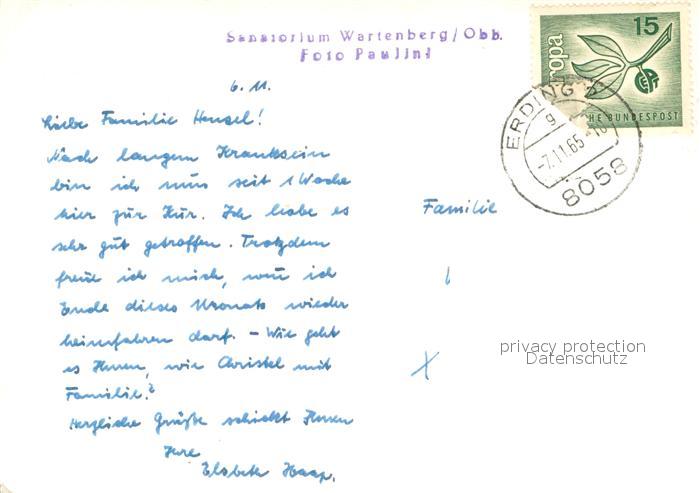 Sanatorium Wartenberg/Obb.
Foto Paulini
15
Europa
HE BUNDESPOST
ERDING 2
7.11.65
8058
6. 11.
Liebe Familie Hensel!
Nach langem Kranksein
bin ich nun seit 1 Woche
hier zur Kur. Ich habe es
sehr gut getroffen. Trotzdem
freue ich mich, wenn ich
Ende dieses Monats wieder
heimfahren darf. – Wie geht
es Ihnen, wie Christel mit
Familie?
Herzliche Grüße schickt Ihnen
Ihre
Elsbeth Haap.
Familie
privacy protection
Datenschutz